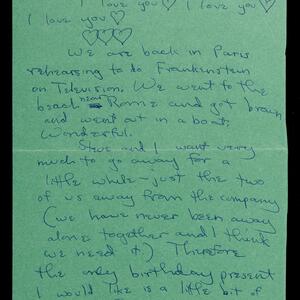 I love you ♡ I love you ♡
I love you ♡
♡♡♡
We are back in Paris
rehearsing to do Frankenstein
on Television. We went to the
beach near Rome and got brown
and went out in a boat.
Wonderful.
Steve and I want very
much to go away for a
little while - just the two
of us away from the company
(we have never been away
alone together and I think
we need it.) Therefore
the only birthday present
I would like is a little bit of